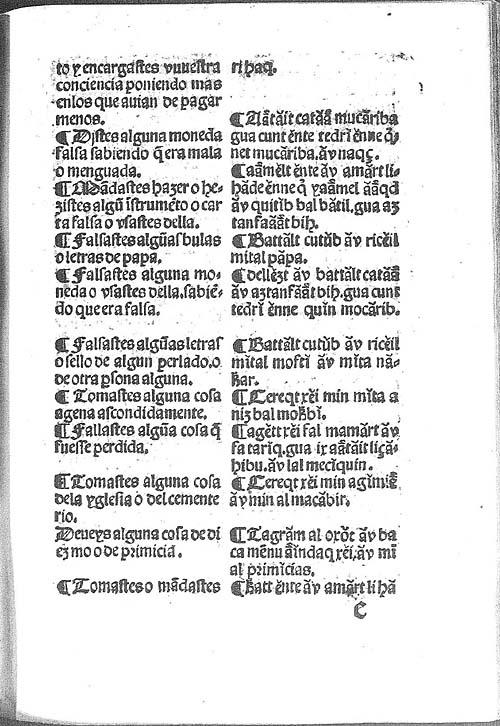 to y encargastes vuuestra
conciencia poniendo mas
enlos que auian de pagar
menos.
¶ Distes alguna moneda
falsa sabiendo q̃ era mala
o menguada.
¶ Mãdastes hazer o he-
zistes algũ ĩstrumẽto o car
ta falsa o vsastes della.
¶ Falsastes algũas bulas
o letras de papa.
¶ Falsastes alguna mo-
neda o vsastes della, sabiẽ-
do que era falsa.
¶ Falsastes algũas letras
o sello de algun perlado, o
de otra ꝑsona alguna.
¶ Tomastes alguna cosa
agena ascondidamente.
¶ Fallastes algũa cosa q̃
fuesse perdida.
¶ Tomastes alguna cosa
dela yglesia o del cemente
rio.
Deueys alguna cosa de di
ezmo o de primicia.
¶ Tomastes o mãdastes
ri haq.
¶ Aãtãit catãã mucãriba
gua cunt ẽnte tedrĩ ẽnne q̃-
net mucãriba, ãv naqç.
¶ Aãmẽlt ẽnte ãv amãrt li-
hãde ẽnne q̃ yaãmel ããq̃d
ãv quitũb bal bãtil, gua az
tanfaããt bih.
¶ Battãlt cutũb ãv ricẽil
mital pãpa.
¶ dellẽzt ãv battãlt catãã
ãv aztanfããt bih, gua cunt
tedri ẽnne quĩn mocãrib.
¶ Battãlt cutũb ãv ricẽil
mĩtal mofti ãv mĩta nã-
ẖar.
¶ Cereqt xẽi min mĩta a
niz bal moẖbĩ.
¶ agẽtt xẽi fal mamãrt ãv
fa tariq, gua ix aãtãit liçã-
hibu, ãv lal mecĩquin.
¶ Cereqt xẽi min agĩmiẽ
ãv min al macãbir.
¶ Tagrãm al oxõr ãv ba
ca mẽnu ãĩndaq xẽi, ãv mĩ
al primĩcias.
¶ ẖatt ẽnte ãv amãrt li hã
c